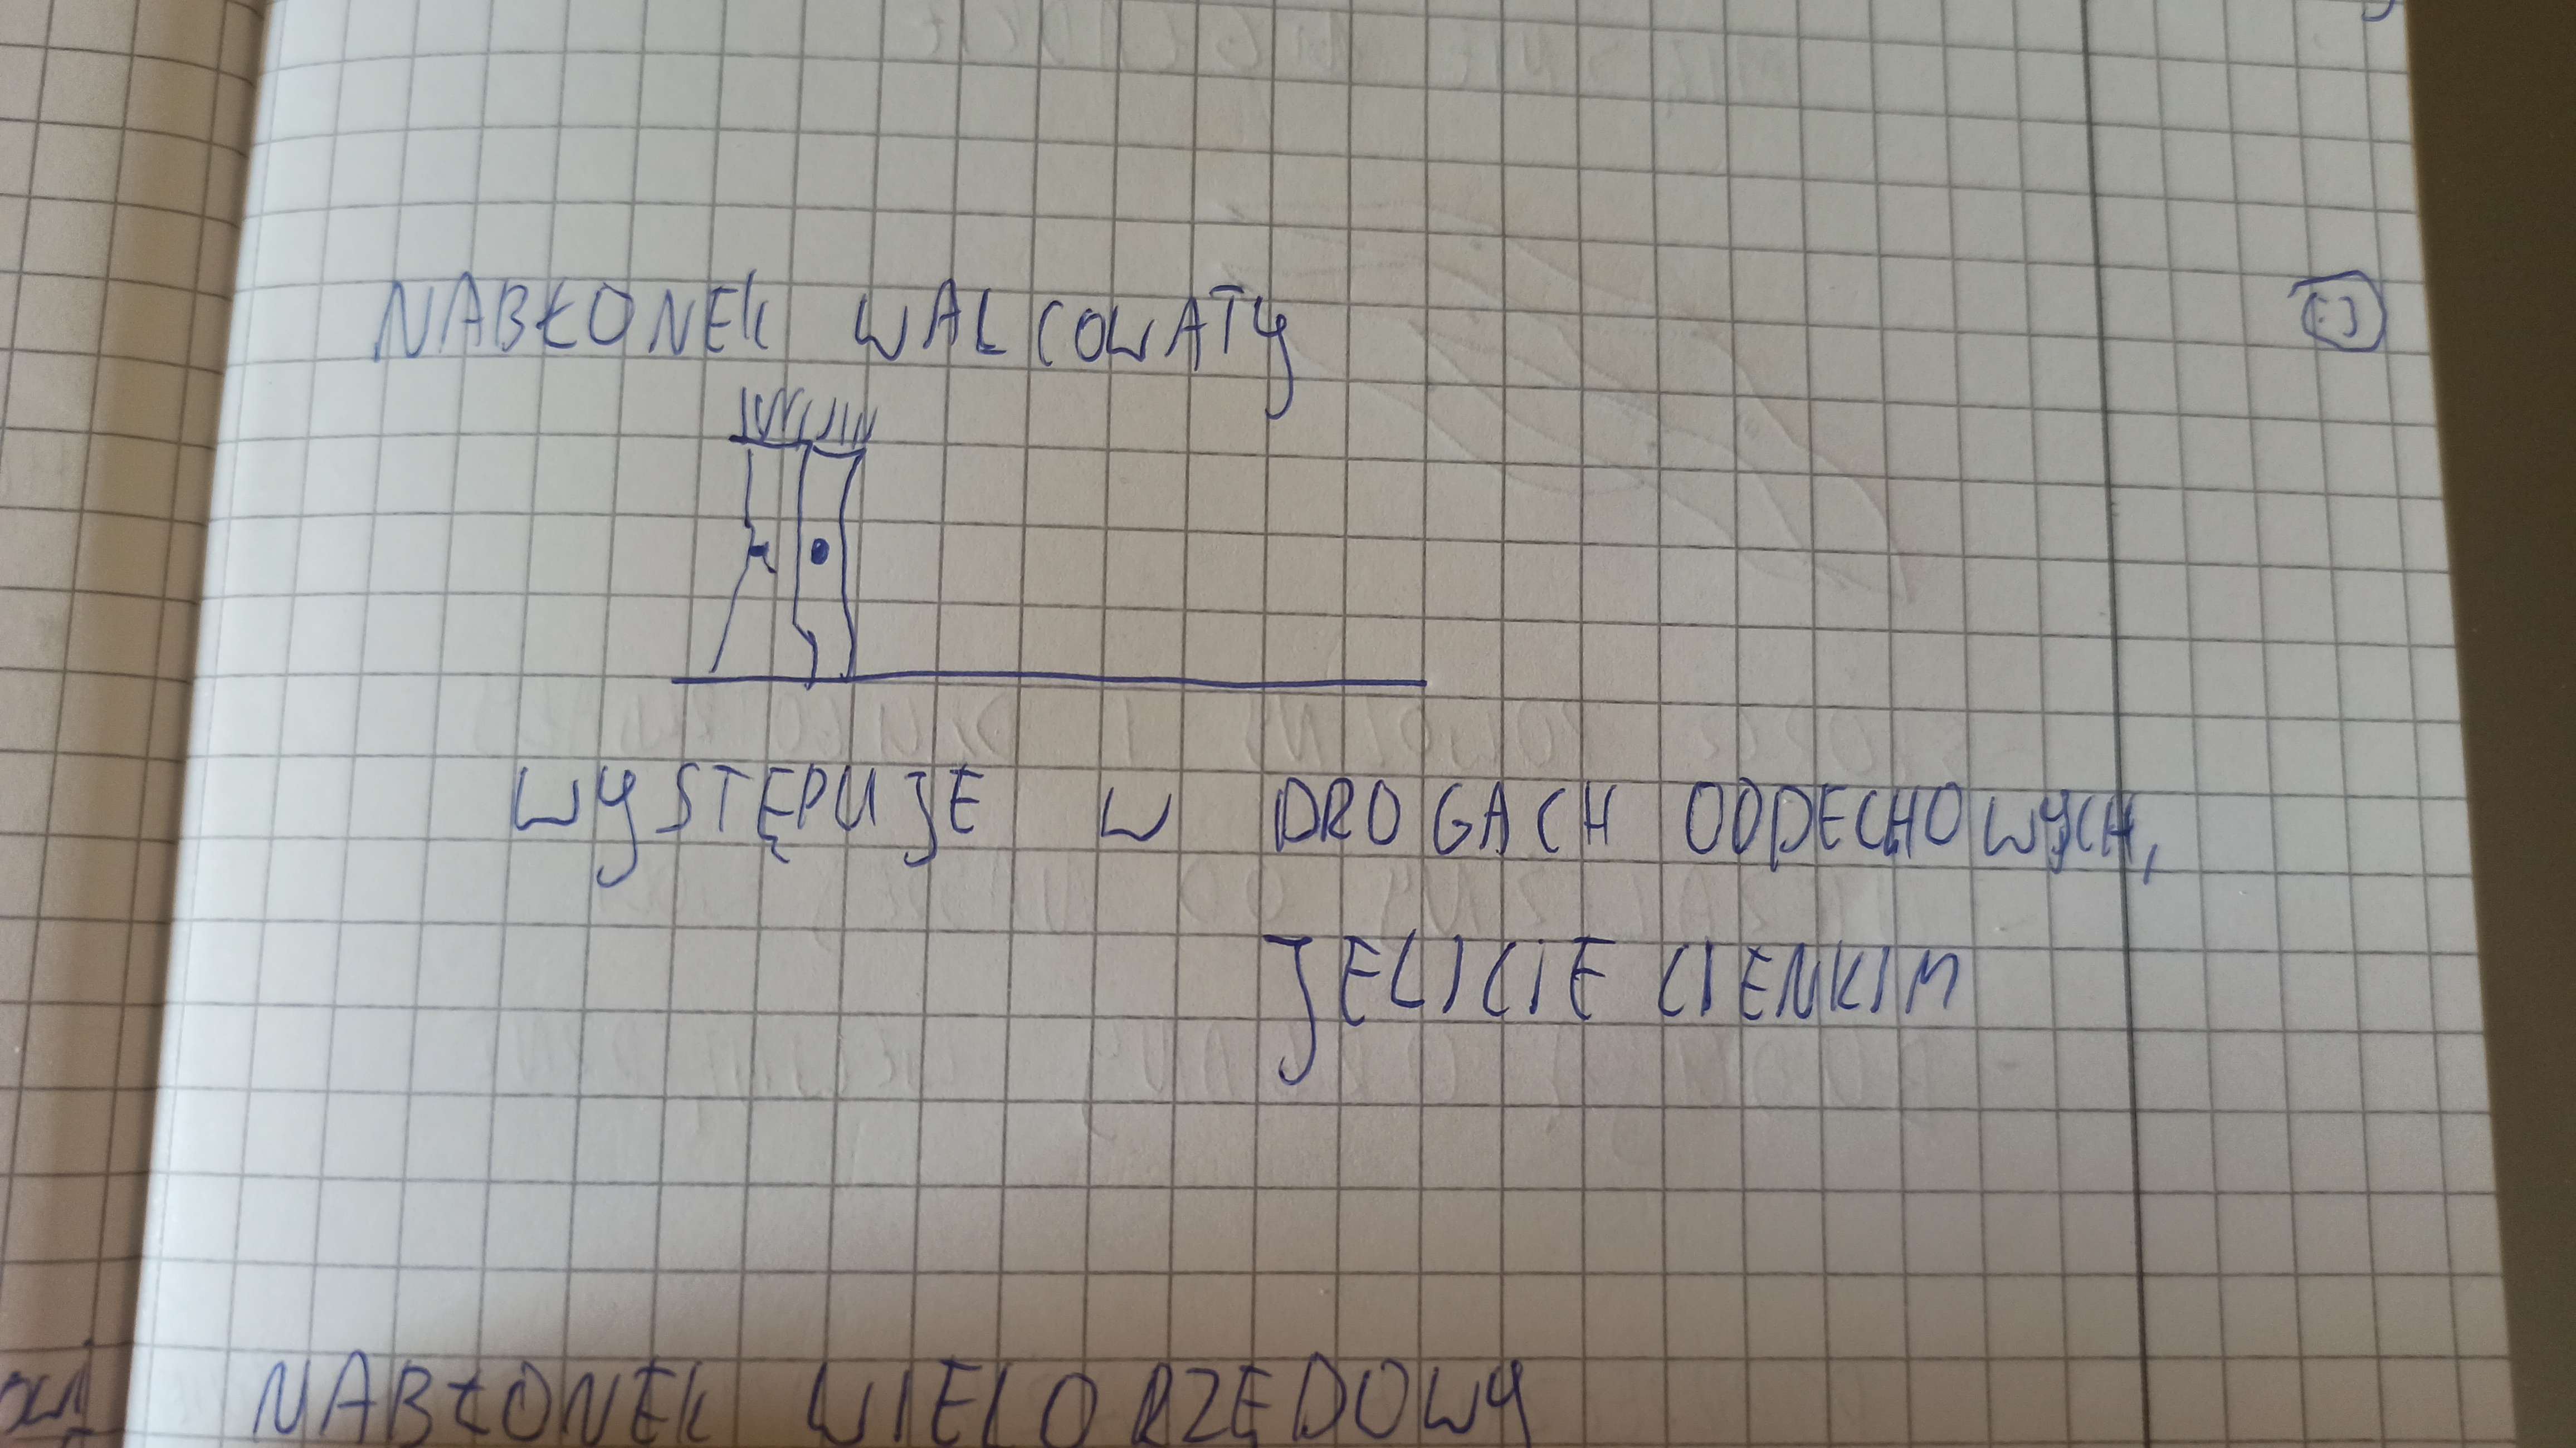 NABŁONEK WALCOWATY
WYSTĘPUJE W DROGACH ODDECHOWYCH,
JELICIE CIENKIM
NABŁONEK WIELORZĘDOWY